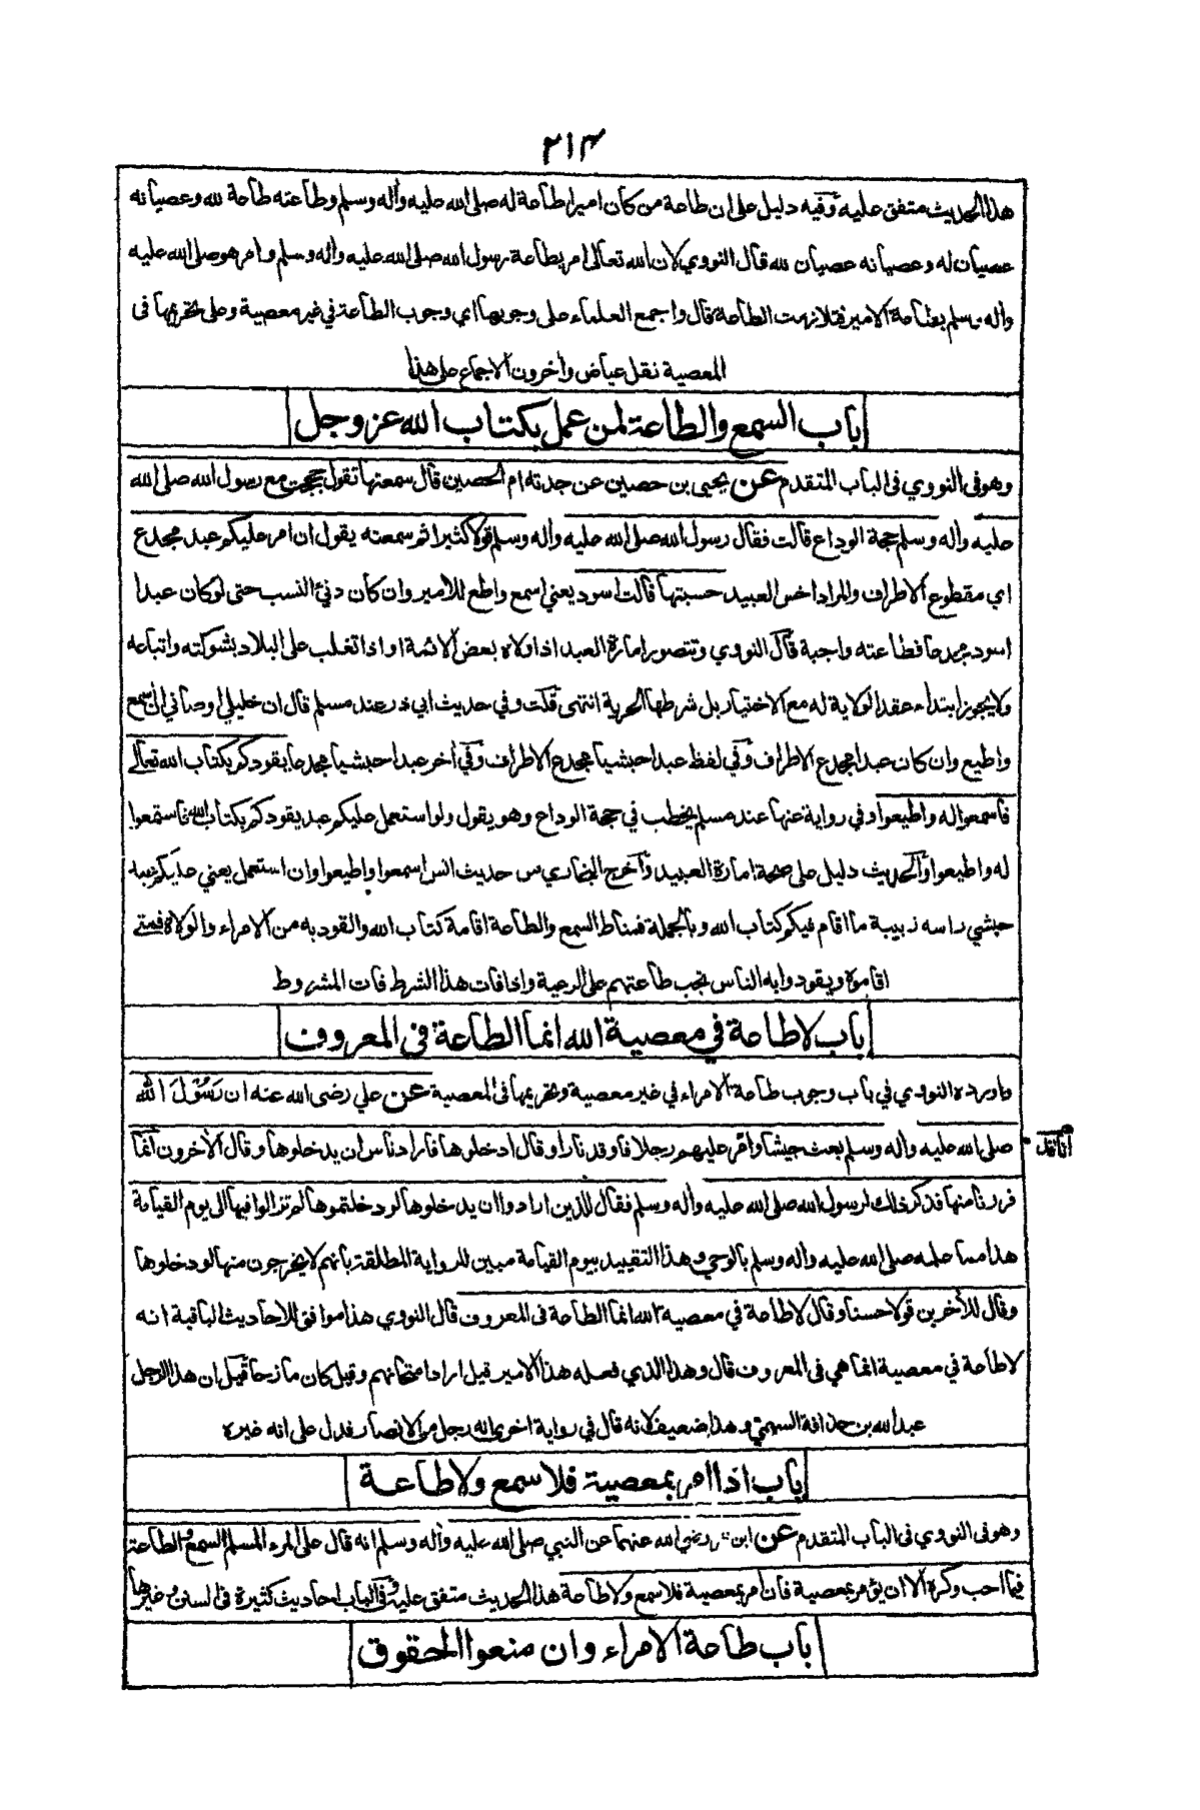 ٢١٤
هذا الحديث متفق عليه وفيه دليل على ان طاعة من كان اميرا طاعة له صلى الله عليه وأله وسلم وطاعته طاعة لله وعصيانه
عصيان له وعصيانه عصيان لله قال النووي لان الله تعالى امر بطاعة رسول الله صلى الله عليه وأله وسلم وامر هو صلى الله عليه
وأله وسلم بطاعة الامير فتلازمت الطاعة قال واجمع العلماء على وجوبها اي وجوب الطاعة في غير معصية وعلى تحريمها فى
المعصية نقل عياض وأخرون الاجماع على هذا
باب السمع والطاعة لمن عمل بكتاب الله عز وجل
وهو فى النووي فى الباب المتقدم عن يحيى بن حصين عن جدته ام الحصين قال سمعتها تقول حججت مع رسول الله صلى الله
عليه وأله وسلم حجة الوداع قالت فقال رسول الله صلى الله عليه وأله وسلم قولا كثيرا ثم سمعته يقول ان امر عليكم عبد مجدع
اي مقطوع الاطراف والمراد اخس العبيد حسبتها قالت اسود يعني اسمع واطع للامير وان كان دنئ النسب حتى لو كان عبدا
اسود مجدعا فطاعته واجبة قال النووي وتتصور امارة العبد اذا ولاه بعض الائمة او اذا تغلب على البلاد بشوكته واتباعه
ولا يجوز ابتداء عقد الولاية له مع الاختيار بل شرطها الحرية انتهى قلت وفي حديث ابي ذر عند مسلم قال ان خليلي اوصاني ان اسمع
واطيع وان كان عبدا مجدع الاطراف وفي لفظ عبدا حبشيا مجدع الاطراف وفي أخر عبدا حبشيا مجدعا يقودكم بكتاب الله تعالى
فاسمعوا له واطيعوا وفي رواية عنها عند مسلم يخطب في حجة الوداع وهو يقول ولو استعمل عليكم عبد يقودكم بكتاب الله فاستمعوا
له واطيعوا والحديث دليل على صحة امارة العبيد وأخرج البخاري من حديث انس اسمعوا واطيعوا وان استعمل يعني عليكم عبد
حبشي راسه زبيبة ما اقام فيكم كتاب الله وبالجملة فمناط السمع والطاعة اقامة كتاب الله والقود به من الامراء والولاة فمتى
اقاموه ويقودوا به الناس تجب طاعتهم على الرعية واذا فات هذا الشرط فات المشروط
باب لا طاعة في معصية الله انما الطاعة فى المعروف
واورده النووي في باب وجوب طاعة الامراء في غير معصية وتحريمها فى المعصية عن علي رضى الله عنه ان رَسُوْلَ الله
صلى الله عليه وأله وسلم بعث جيشا وامّر عليهم رجلا فاوقد نارا وقال ادخلوها فاراد ناس ان يدخلوها وقال الأخرون انما
فررنا منها فذكر ذلك لرسول الله صلى الله عليه وأله وسلم فقال للذين ارادوا ان يدخلوها لو دخلتموها لم تزالوا فيها الى يوم القيامة
هذا مما علمه صلى الله عليه وأله وسلم بالوحي وهذا التقييد بيوم القيامة مبين للرواية المطلقة بانهم لا يخرجون منها لو دخلوها
وقال للأخرين قولا حسنا وقال لا طاعة في معصية الله انما الطاعة فى المعروف قال النووي هذا موافق للاحاديث الباقية انه
لا طاعة في معصية انما هي فى المعروف قال وهذا الذي فعله هذا الامير قيل اراد امتحانهم وقيل كان مازحا قيل ان هذا الرجل
عبد الله بن حذافة السهمي وهذا ضعيف لانه قال في رواية اخرى انه رجل من الانصار فدل على انه غيره
باب اذا امر بمعصية فلا سمع ولا طاعة
وهو فى النووي فى الباب المتقدم عن ابن عمر رضي الله عنهما عن النبي صلى الله عليه وأله وسلم انه قال على المرء المسلم السمع والطاعة
فيما احب وكره الا ان يؤمر بمعصية فان امر بمعصية فلا سمع ولا طاعة هذا الحديث متفق عليه وفى الباب احاديث كثيرة فى السنن وغيرها
باب طاعة الامراء وان منعوا الحقوق